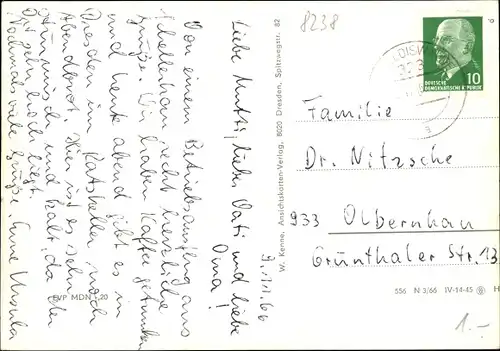 8238
9.11.66
Liebe Mutti, lieber Vati und liebe
Oma!
Von einem Betriebsausflug aus
Schellerhau recht herzliche
Grüße. Wir haben Kaffee getrunken
und heute abend gibt es in
Dresden im Ratskeller noch
Abendbrot. Hier ist es sehr
stürmisch und kalt da der
Ort sehr hoch liegt.
Nochmals viele Grüße Eure Ursula
EVP MDN -,20
W. Kenne, Ansichtskarten-Verlag, 8020 Dresden, Spitzwegstr. 82
10
DEUTSCHE
DEMOKRATISCHE REPUBLIK
Familie
Dr. Nitzsche
933 Olbernhau
Grünthaler Str. 13
556 N 3/66 IV-14-45 H
1.-